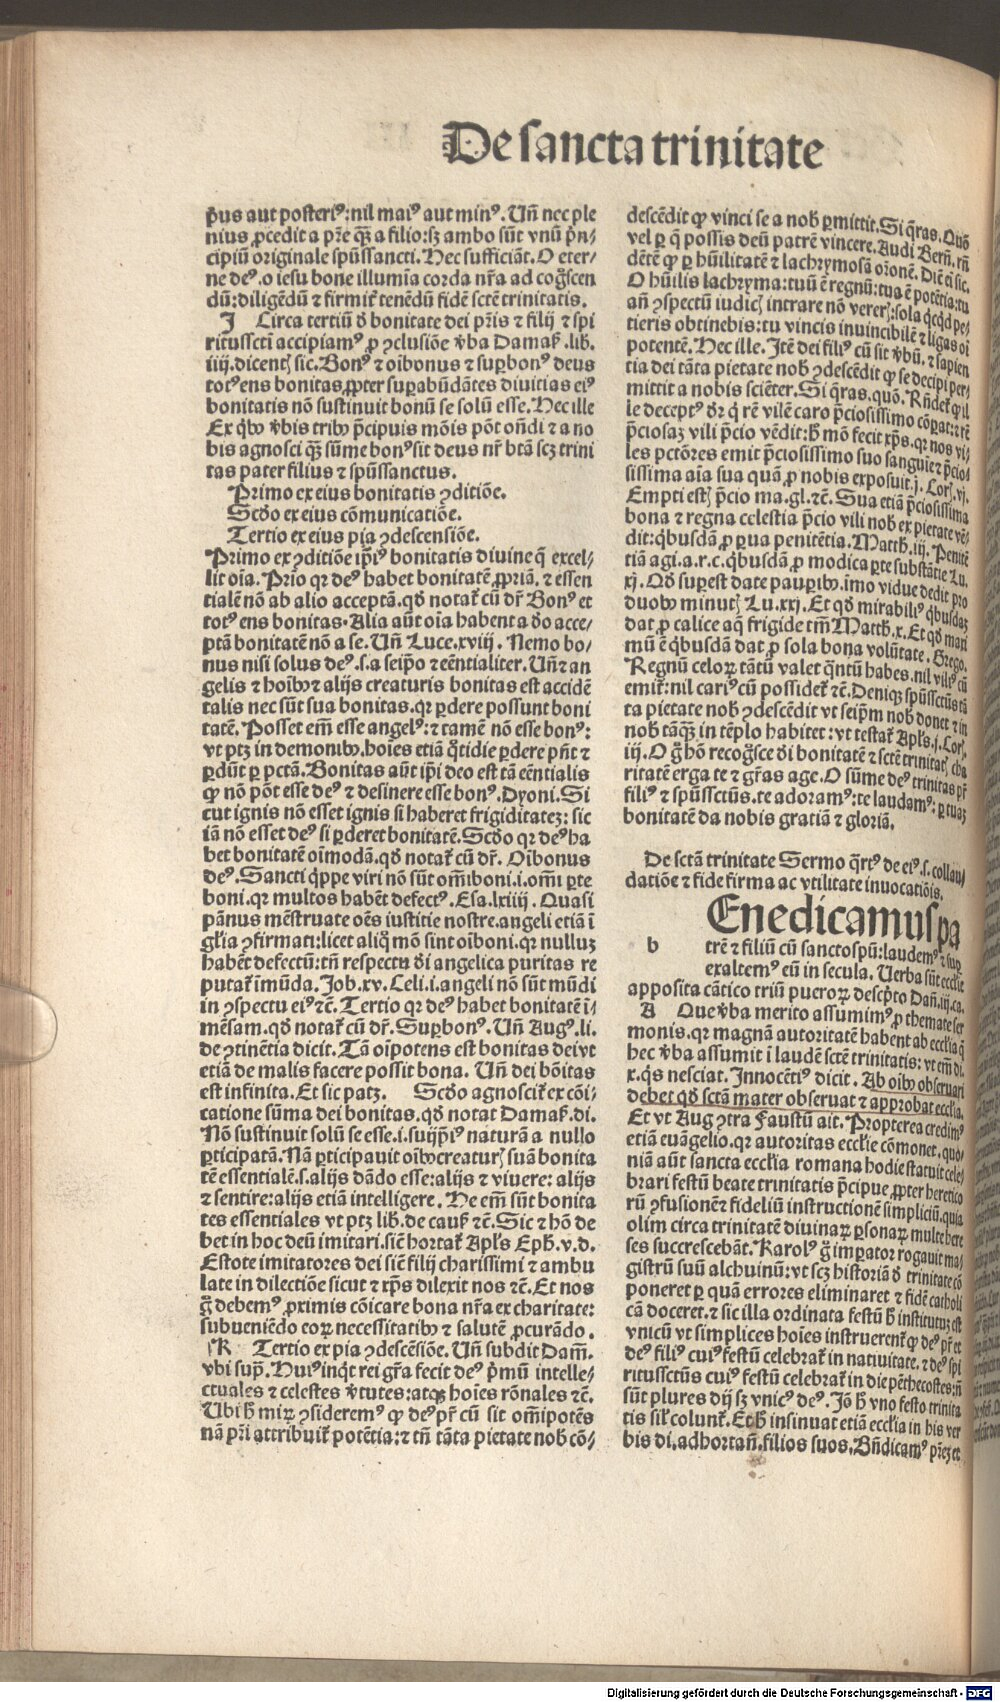 De sancta trinitate
p̃us aut posteriꝰ: nil maiꝰ aut minꝰ. Uñ nec ple
nius ꝓcedit a pr̃e q̃ꝫ a filio: sꝫ ambo sūt vnū p̃n⸗
cipiū originale spūssancti. Hec sufficiāt. O eter⸗
ne deꝰ. o iesu bone illumīa corda nr̃a ad cog̃scen
dū: diligēdū ⁊ firmiť tenēdū fidē sctē trinitatis.
J Circa tertiū ð bonitate dei pr̃is ⁊ filij ⁊ spi
ritussctī accipiamꝰ ꝓ ꝯclusiōe ṽba Damaẜ. lib̃.
iiij. dicentꝭ sic. Bonꝰ ⁊ oībonus ⁊ suꝑbonꝰ deus
totꝰ ens bonitas, ꝓpter suꝑabūdātes diuitias eiꝰ
bonitatis nō sustinuit bonū se solū esse. Hec ille
Ex q̃bꝰ ṽbis tribꝰ p̃cipuis mōis pōt on̄di ⁊ a no
bis agnosci q̃ꝫ sūme bonꝰ sit deus nr̃ btā scꝫ trini
tas pater filius ⁊ spūssanctus.
Primo ex eius bonitatis ꝯditiōe.
Scðo ex eius cōmunicatiōe.
Tertio ex eius pia ꝯdescensiōe.
Primo ex ꝯditiōe ip̃iꝰ bonitatis diuine q̃ excel⸗
lit oīa. Prio qꝛ deꝰ habet bonitatē ꝓpriā. ⁊ essen
tialē nō ab alio acceptā. qð notať cū dr̃ Bonꝰ et
totꝰ ens bonitas. Alia aūt oīa habent a ðo acce⸗
ptā bonitatē nō a se. Uñ Luce. xviij. Nemo bo⸗
nus nisi solus deꝰ. s. a seip̃o ⁊ eēntialiter. Uñ ⁊ an
gelis ⁊ hoībꝰ ⁊ alijs creaturis bonitas est accidē
talis nec sūt sua bonitas. qꝛ ꝑdere possunt boni
tatē. Posset em̄ esse angelꝰ: ⁊ tamē nō esse bonꝰ:
vt ptꝫ in demonibꝰ. hoies etiā q̃tidie ꝑdere pn̄t ⁊
ꝑdūt ꝑ pctā. Bonitas aūt ip̄i deo est tā eēntialis
ꝙ nō pōt esse deꝰ ⁊ desinere esse bonꝰ. Dyoni. Si
cut ignis nō esset ignis si haberet frigiditateꝫ: sic
iā nō esset deꝰ si ꝑderet bonitatē. Scðo qꝛ deꝰ ha
bet bonitatē oīmodā. qð notať cū dr̃. Oībonus
deꝰ. Sancti q̃ppe viri nō sūt om̄iboni. i. om̄i ꝑte
boni. qꝛ multos habēt defectꝰ. Esa. lxiiij. Quasi
pānus mēstruate oēs iustitie nostre. angeli etiā ī
gl̄ia ꝯfirmati: licet aliq̃ mō sint oīboni. qꝛ nulluꝫ
habēt defectū: tn̄ respectu ði angelica puritas re
putať imūda. Job. xv. Celi. i. angeli nō sūt mūdi
in ꝯspectu eiꝰ ⁊c̃. Tertio qꝛ deꝰ habet bonitatē ī⸗
mēsam. qð notať cū dr̃. Suꝑbonꝰ. Uñ Augꝰ. li.
de ꝯtinētia dicit. Tā oīpotens est bonitas dei vt
etiā de malis facere possit bona. Uñ dei bōitas
est infinita. Et sic patꝫ. Scðo agnosciť ex cōi⸗
catione sūma dei bonitas. qð notat Damaẜ. di.
Nō sustinuit solū se esse. i. suijp̄iꝰ naturā a nullo
ꝑticipatā. Nā ꝑticipauit oībꝰ creaturꝭ suā bonita
tē essentialē. s. alijs dādo esse: alijs ⁊ viuere: alijs
⁊ sentire: alijs etiā intelligere. He em̄ sūt bonita
tes essentiales vt ptꝫ lib̃. de cauẜ ⁊c̃. Sic ⁊ hō de
bet in hoc deū imitari. siē hortať Apl̄s Eph̃. v. d.
Estote imitatores dei siē filij charissimi ⁊ ambu
late in dilectiōe sicut ⁊ xp̄s dilexit nos ⁊c̃. Et nos
g̃ debemꝰ ꝓximis cōicare bona nr̃a ex charitate:
subueniēdo eoꝝ necessitatibꝰ ⁊ salutē ꝓcurādo.
K Tertio ex pia ꝯdescēsiōe. Uñ subdit Dam̃.
vbi sup̃. Huiꝰ inq̃t rei gr̃a fecit deꝰ p̃mū intelle⸗
ctuales ⁊ celestes ṽtutes: atqꝫ hoies rōnales ⁊c̃.
Ubi h̃ miꝝ ꝯsideremꝰ ꝙ deꝰ pr̃ cū sit om̄ipotēs
nā pr̃i attribuiť potētia: ⁊ tn̄ tāta pietate nob̃ cō⸗
descēdit ꝙ vinci se a nob̃ ꝑmittit. Si q̃ras. Quō
vel ꝑ q̃ possis deū patrē vincere. Audi Berñ. rñ
dētē ꝙ ꝑ hūilitatē ⁊ lachrymosā orōnē. Diē ei sic.
O hūilis lachryma: tuū ē regnū: tua ē potētia: tu
añ ꝯspectū iudicꝭ intrare nō vererꝭ: sola q̃cq̃d pe⸗
tieris obtinebis: tu vincis inuincibilē ⁊ ligas oī
potentē. Hec ille. Itē dei filiꝰ cū sit ṽbū. ⁊ sapien
tia dei tāta pietate nob̃ ꝯdescēdit ꝙ se decipi ꝑer⸗
mittit a nobis sciēter. Si q̃ras. quō. Rn̄deť ꝙ il
le deceptꝰ ðr q̃ rē vilē caro p̃ciosissimo cōpat: ⁊ rē
p̃ciosaꝫ vili p̃cio vēdit: h̃ mō fecit xp̄s. qꝛ nos vi⸗
les pctōres emit p̃ciosissimo suo sanguīe ⁊ p̃cio⸗
sissima aīa sua quā ꝓ nobis exposuit. j. Corꝭ. vj.
Empti estꝭ p̃cio ma. gl. ⁊c̃. Sua etiā p̃ciosissima
bona ⁊ regna celestia p̃cio vili nob̃ ex pietate vē⸗
dit: q̃busdā ꝓ ꝑua penitētia. Matth̃. iij. Penitē
tiā agi. a. r. c. q̃busdā ꝓ modica ꝑte substātie Lu.
xj. Qð suꝑest date pauꝑibꝰ. imo vidue dedit pro
duobꝰ minutꝭ Lu. xxj. Et qð mirabiliꝰ q̃busdaꝫ
dat ꝓ calice aq̃ frigide tm̄ Matth̃. x. Et qð maxi
mū ē q̃busdā dat ꝓ sola bona volūtate. Grego.
Regnū celoꝝ tātū valet q̃ntū habes. nil viliꝰ cū
emiť: nil cariꝰ cū possideť ⁊c̃. Deniqꝫ spūssctūs tā
ta pietate nob̃ ꝯdescēdit vt seip̄m nob̃ donet ⁊ in
nob̃ tāq̃ꝫ in tēplo habitet: vt testať Apl̄s. j. Corꝭ.
iij. O g̃ hō recog̃sce ði bonitatē ⁊ sctē trinitatꝭ cha
ritatē erga te ⁊ gr̃as age. O sūme deꝰ trinitas pr̃
filiꝰ ⁊ spūssctūs. te adoramꝰ: te laudamꝰ: ꝑ tuaꝫ
bonitatē da nobis gratiā ⁊ gloriā.
De sctā trinitate Sermo q̃rtꝰ de eiꝰ. s. collau⸗
datiōe ⁊ fide firma ac vtilitate inuocatiōis.
Enedicamus pa
b trē ⁊ filiū cū sancto spū: laudemꝰ ⁊ suꝑ
exaltemꝰ eū in secula. Uerba sūt eccl̄ie
apposita cātico triū pueroꝝ descp̃to Dañ. iij. ca.
A Que ṽba merito assumimꝰ ꝓ themate ser
monis. qꝛ magnā autoritatē habent ab eccl̄ia q̃
hec ṽba assumit ī laudē sctē trinitatis: vt em̄ di.
x. q̃s nesciat. Innocētiꝰ dicit. Ab oībꝰ obseruari
debet qð sctā mater obseruat ⁊ approbat eccl̄ia.
Et vt Aug ꝯtra Faustū ait. Propterea credimꝰ
etiā euāgelio. qꝛ autoritas eccl̄ie cōmonet. quō⸗
niā aūt sancta eccl̄ia romana hodie statuit cele⸗
brari festū beate trinitatis p̃cipue ꝓpter heretico
rū ꝯfusionē ⁊ fideliū instructionē simpliciū. quia
olim circa trinitatē diuinaꝝ ꝑsonaꝝ multe here
ses succrescebāt. Karolꝰ g̃ imꝑator rogauit ma⸗
gistrū suū alchuinū: vt scꝫ historiā ð trinitate cō
poneret ꝑ quā errores eliminaret ⁊ fidē catholi
cā doceret. ⁊ sic illa ordinata festū h̃ institutuꝫ est
vnicū vt simplices hoies instruerentꝭ ꝙ deꝰ pr̃ et
deꝰ filiꝰ cuiꝰ festū celebrať in natiuitate. ⁊ deꝰ spi
ritussctūs cuiꝰ festū celebrať in die pēthecostes: ñ
sūt plures dij sꝫ vnicꝰ deꝰ. Jō h̃ vno festo trinita
tis sil̄ť colunť. Et h̃ insinuat etiā eccl̄ia in his ver
bis di. adhortan̄. filios suos. Bn̄dicamꝰ pr̃eꝫ et
Digitalisierung gefördert durch die Deutsche Forschungsgemeinschaft - DFG